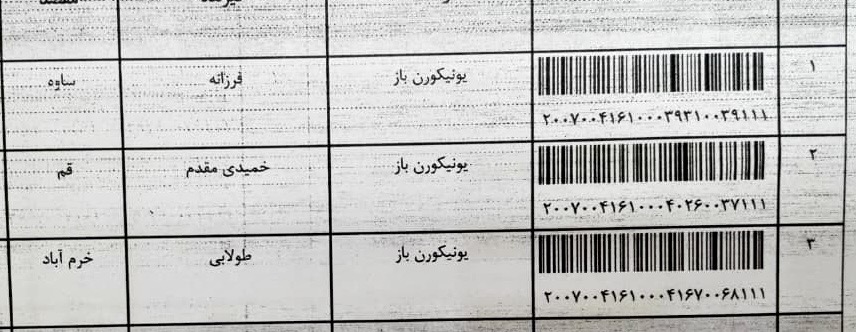 گیرنده مقصد
۱ یونیکورن باز فرزانه ساوه
۲۰۰۷۰۰۴۱۶۱۰۰۰۳۹۳۱۰۰۳۹۱۱۱
۲ یونیکورن باز خمیدی مقدم قم
۲۰۰۷۰۰۴۱۶۱۰۰۰۴۰۲۶۰۰۳۷۱۱۱
۳ یونیکورن باز طولابی خرم آباد
۲۰۰۷۰۰۴۱۶۱۰۰۰۴۱۶۷۰۰۶۸۱۱۱